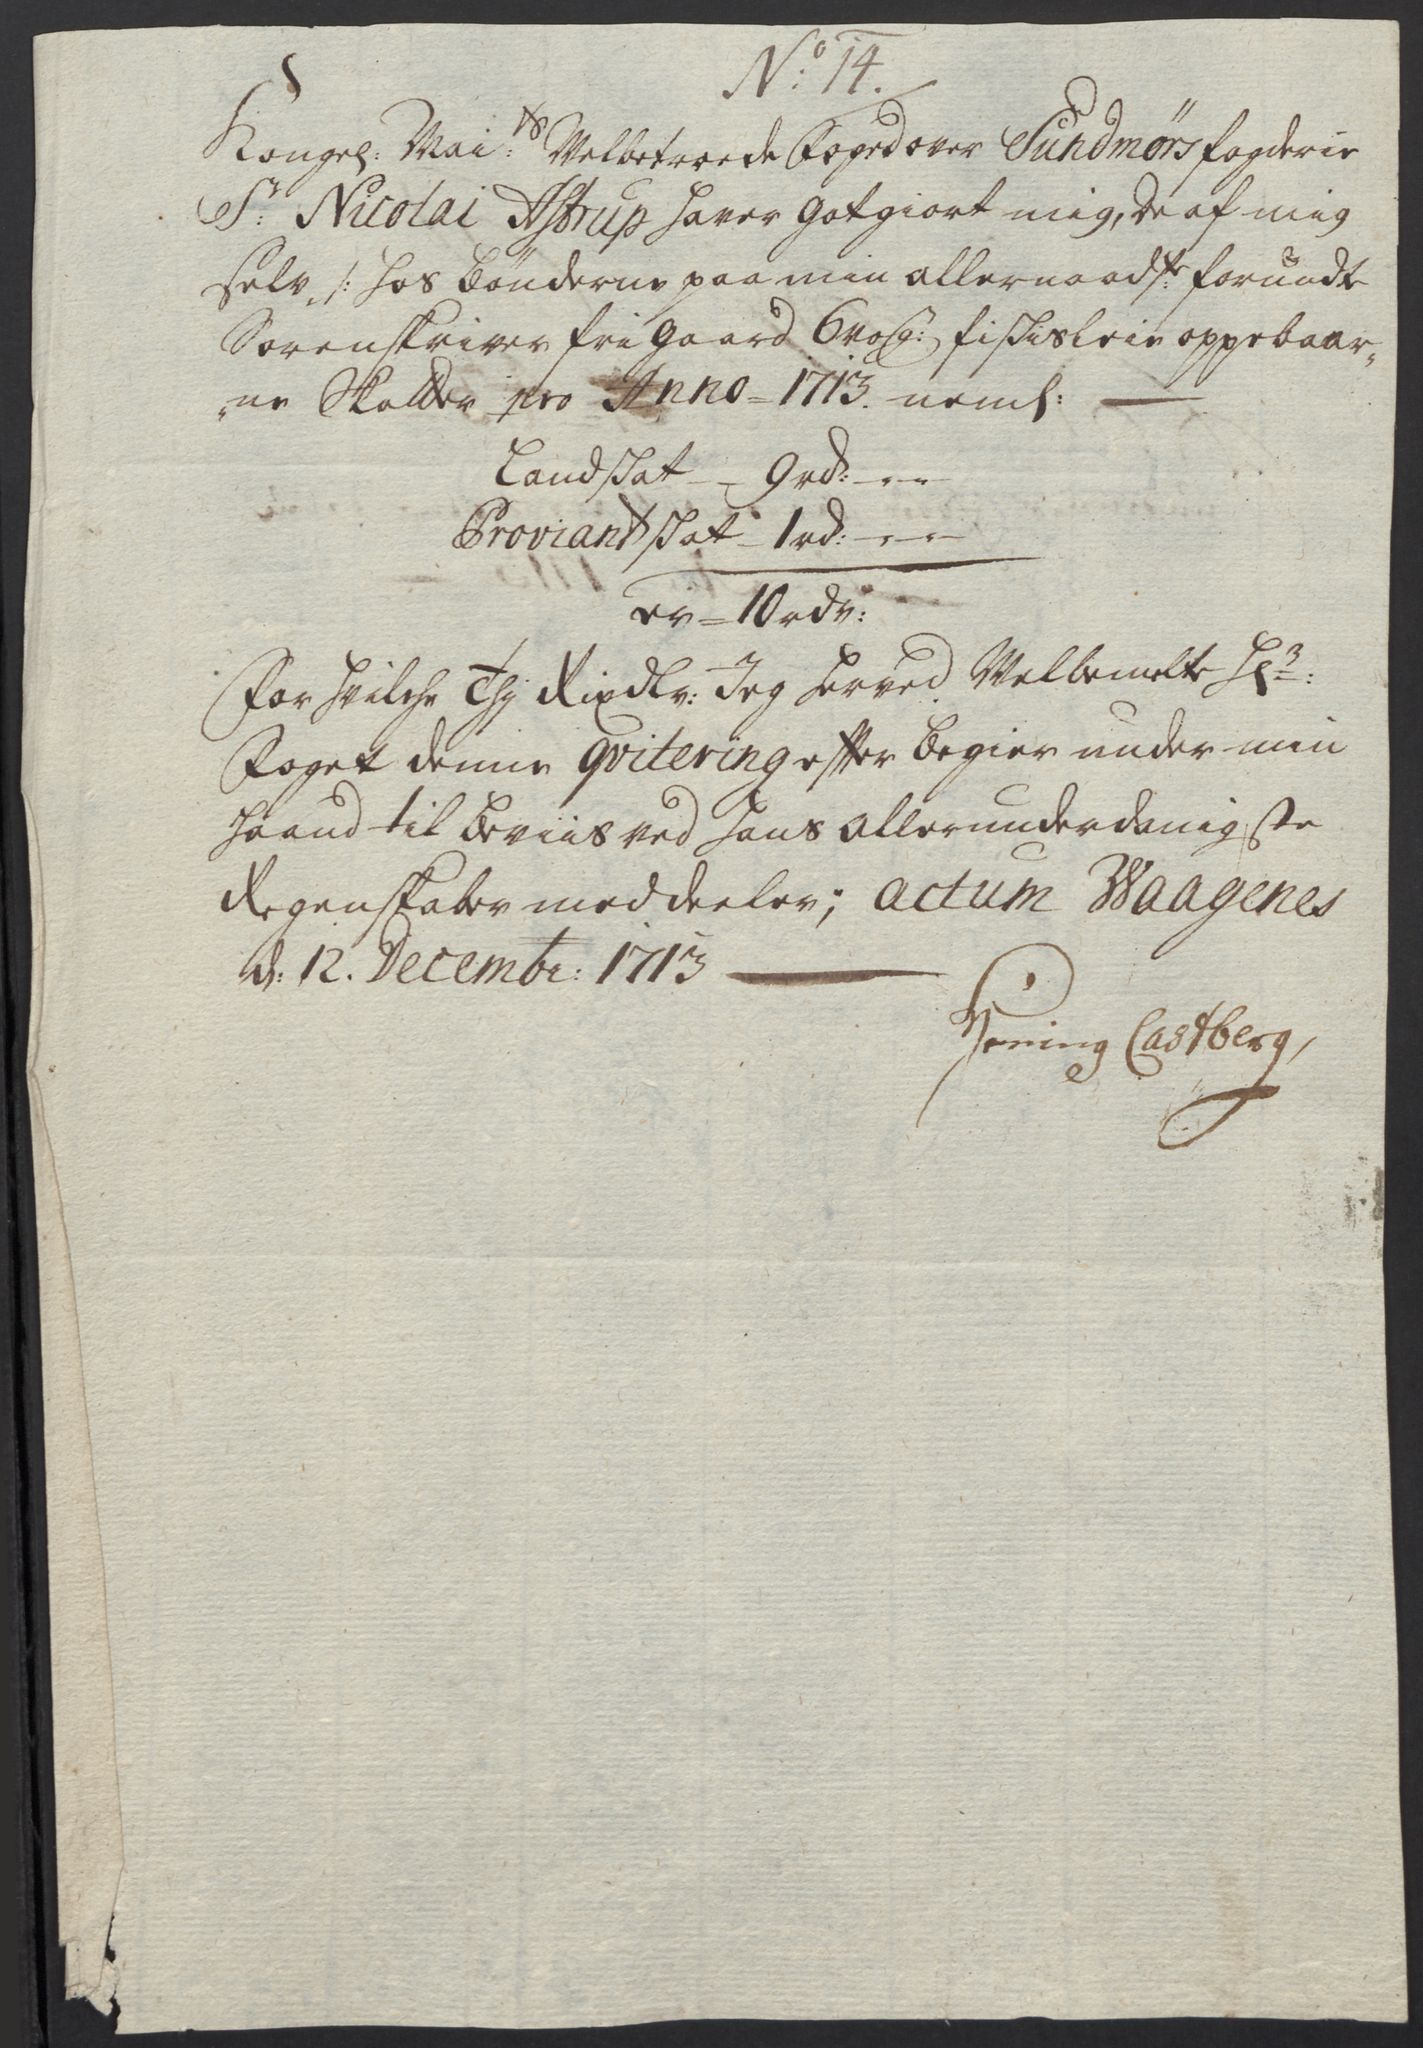 No: 14.
Kongel: Mai:ts Velbetroede Foged over Sundmørs fogderie
Sr: Nicolai Astrup haver Gotgiort mig, de af mig
selv /: hos bønderne paa min allernaadste forundte
Sorenskriver frigaard 6 vog: fiskisleie oppebaar-
-ne Skatter pro Anno = 1713. neml:
Landskat - 9 rd: - - -
Proviantskat - 1 rd: - - -
er = 10 rdr:
For hvilche Thj Rixdlr: Jeg herved Velbemelte Hr:
Foget denne qvitering efter begier under min
haand til beviis ved hans allerunderdanigste
Regenskaber meddeeler; actum Waagenes
d: 12. Decembr: 1713
Castberg,